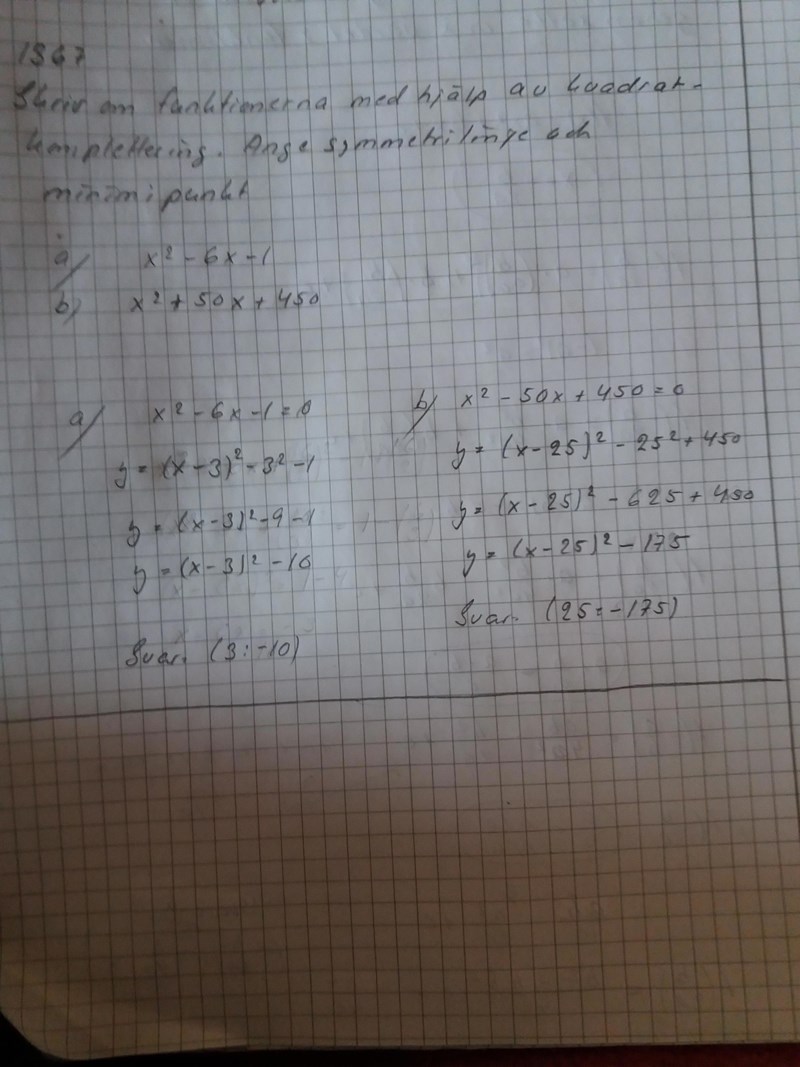 1367
Skriv om funktionerna med hjälp av kvadrat-
komplettering. Ange symmetrilinje och
minimipunkt
a) x² - 6x - 1
b) x² + 50x + 450
a) x² - 6x - 1 = 0
y = (x - 3)² - 3² - 1
y = (x - 3)² - 9 - 1
y = (x - 3)² - 10
Svar. (3 : -10)
b) x² - 50x + 450 = 0
y = (x - 25)² - 25² + 450
y = (x - 25)² - 625 + 450
y = (x - 25)² - 175
Svar. (25 : -175)